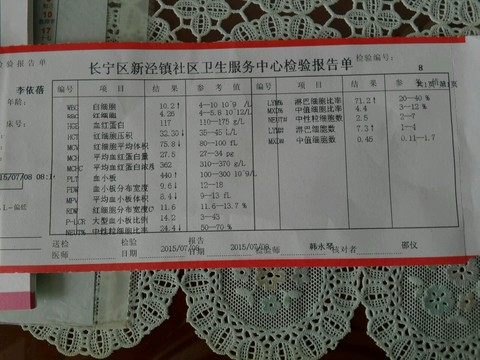 长宁区新泾镇社区卫生服务中心检验报告单
检验编号:
8
李依蓓
年龄:
床号:
编号 项目 结果 参考值 编号 项目 结果 参考值
WBC 白细胞 10.2↑ 4—10 10^9 /L LYM% 淋巴细胞比率 71.2↑ 20—40 %
RBC 红细胞 4.26 4—5.8 10^12/L MXD% 中值细胞比率 4.4 3—12%
HGB 血红蛋白 110—175 g/L NEUT# 中性粒细胞数 2.5 2—7
HCT 红细胞压积 32.30↓ 35—45 L/L LYM# 淋巴细胞数 7.3↑ 1—4
MCV 红细胞平均体积 75.8↓ 80—100 fL MXD# 中值细胞数 0.45 0.11—1.7
MCH 平均血红蛋白量 27.5 27—34 pg
MCHC 平均血红蛋白浓度 362 310—370 g/L
PLT 血小板 440↑ 100—300 10^9/L
PDW 血小板分布宽度 9.6↓ 12—18
MPV 平均血小板体积 8.4↓ 9—13 fL
RDW 红细胞分布宽度C 11.6 11.6—13.7 %
P-LCR 大型血小板比例 14.2 3—43
NEUT% 中性粒细胞比率 24.4↓ 50—70 %
送检医师 检验日期 2015/07/08 报告日期 2015/07/08 检验师 核对者 邵仪